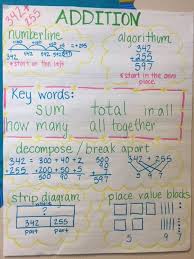 342+
255
ADDITION
numberline
algorithm
342
+ 255
597
* start on the left
* start in the ones
place
Key words:
sum total in all
how many all together
decompose / break apart
342 = 300 + 40 + 2
+ 255 = 200 + 50 + 5
500
90
342 + 255
strip diagram
?
342 255
part part
place value blocks
5 9 7